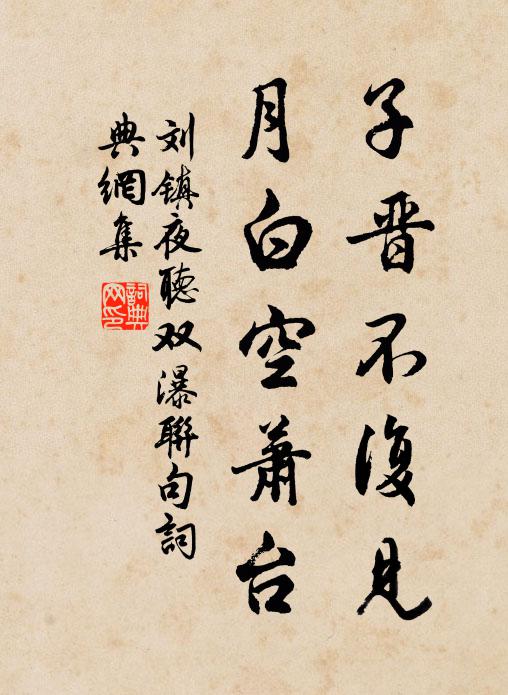 子晋不復見
月白空蕭台
刘镇夜聽双瀑聯句詞
典網集
詞典网印